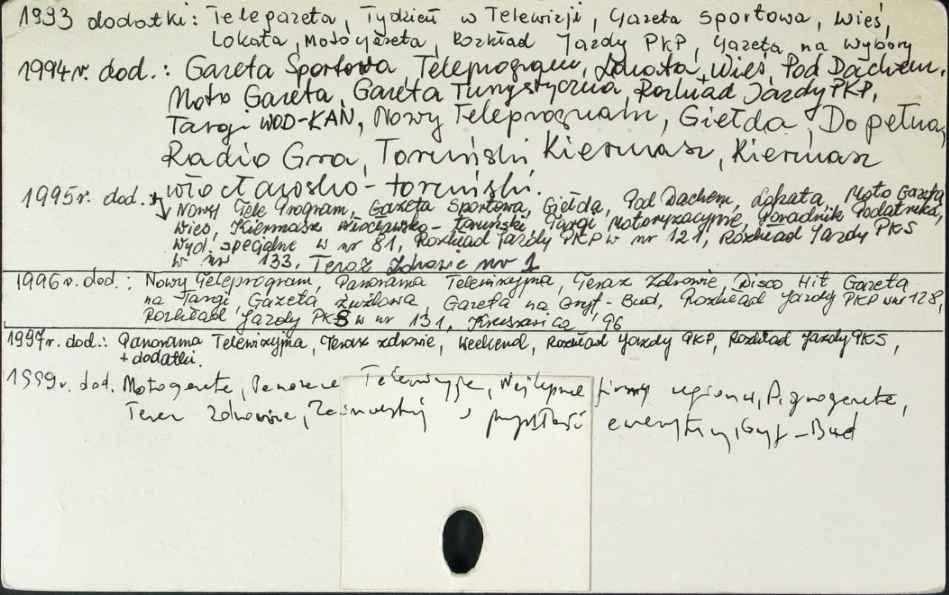 1993 dodatki: Telegazeta, Tydzień w Telewizji, Gazeta Sportowa, Wieś,
Lokata, Moto Gazeta, Rozkład Jazdy PKP, Gazeta na Wybory
1994 r. dod.: Gazeta Sportowa, Teleprogram, Lokata, Wieś, Pod Dachem,
Moto Gazeta, Gazeta Turystyczna, Rozkład Jazdy PKP,
Targi WOD-KAN, Nowy Teleprogram, Giełda, Do pełna,
Radio Gra, Toruński Kiermasz, Kiermasz
włocławsko-toruński.
1995 r. dod. Nowy Tele Program, Gazeta Sportowa, Giełda, Pod Dachem, Lokata, Moto Gazeta,
Wieś, Kiermasz Włocławsko-Toruński, Targi Motoryzacyjne, Poradnik Podatnika,
Wyd. specjalne w nr 81, Rozkład Jazdy PKP w nr 121, Rozkład Jazdy PKS
w nr 133. Teraz Zdrowie nr 1
1996 r. dod.: Nowy Teleprogram, Panorama Telewizyjna, Teraz Zdrowie, Disco Hit Gazeta
na Targi, Gazeta żużlowa, Gazeta na Gryf-Bud, Rozkład Jazdy PKP w nr 128,
Rozkład Jazdy PKS w nr 131, Kruszwica '96
1997 r. dod.: Panorama Telewizyjna, Teraz zdrowie, Weekend, Rozkład Jazdy PKP, Rozkład Jazdy PKS,
+ dodatki.
1999 r. dod. Motogazeta, Panorama Telewizyjna, Najlepsze firmy regionu,
Teraz Zdrowie, w przyszłość emerytury, Gryf-Bud